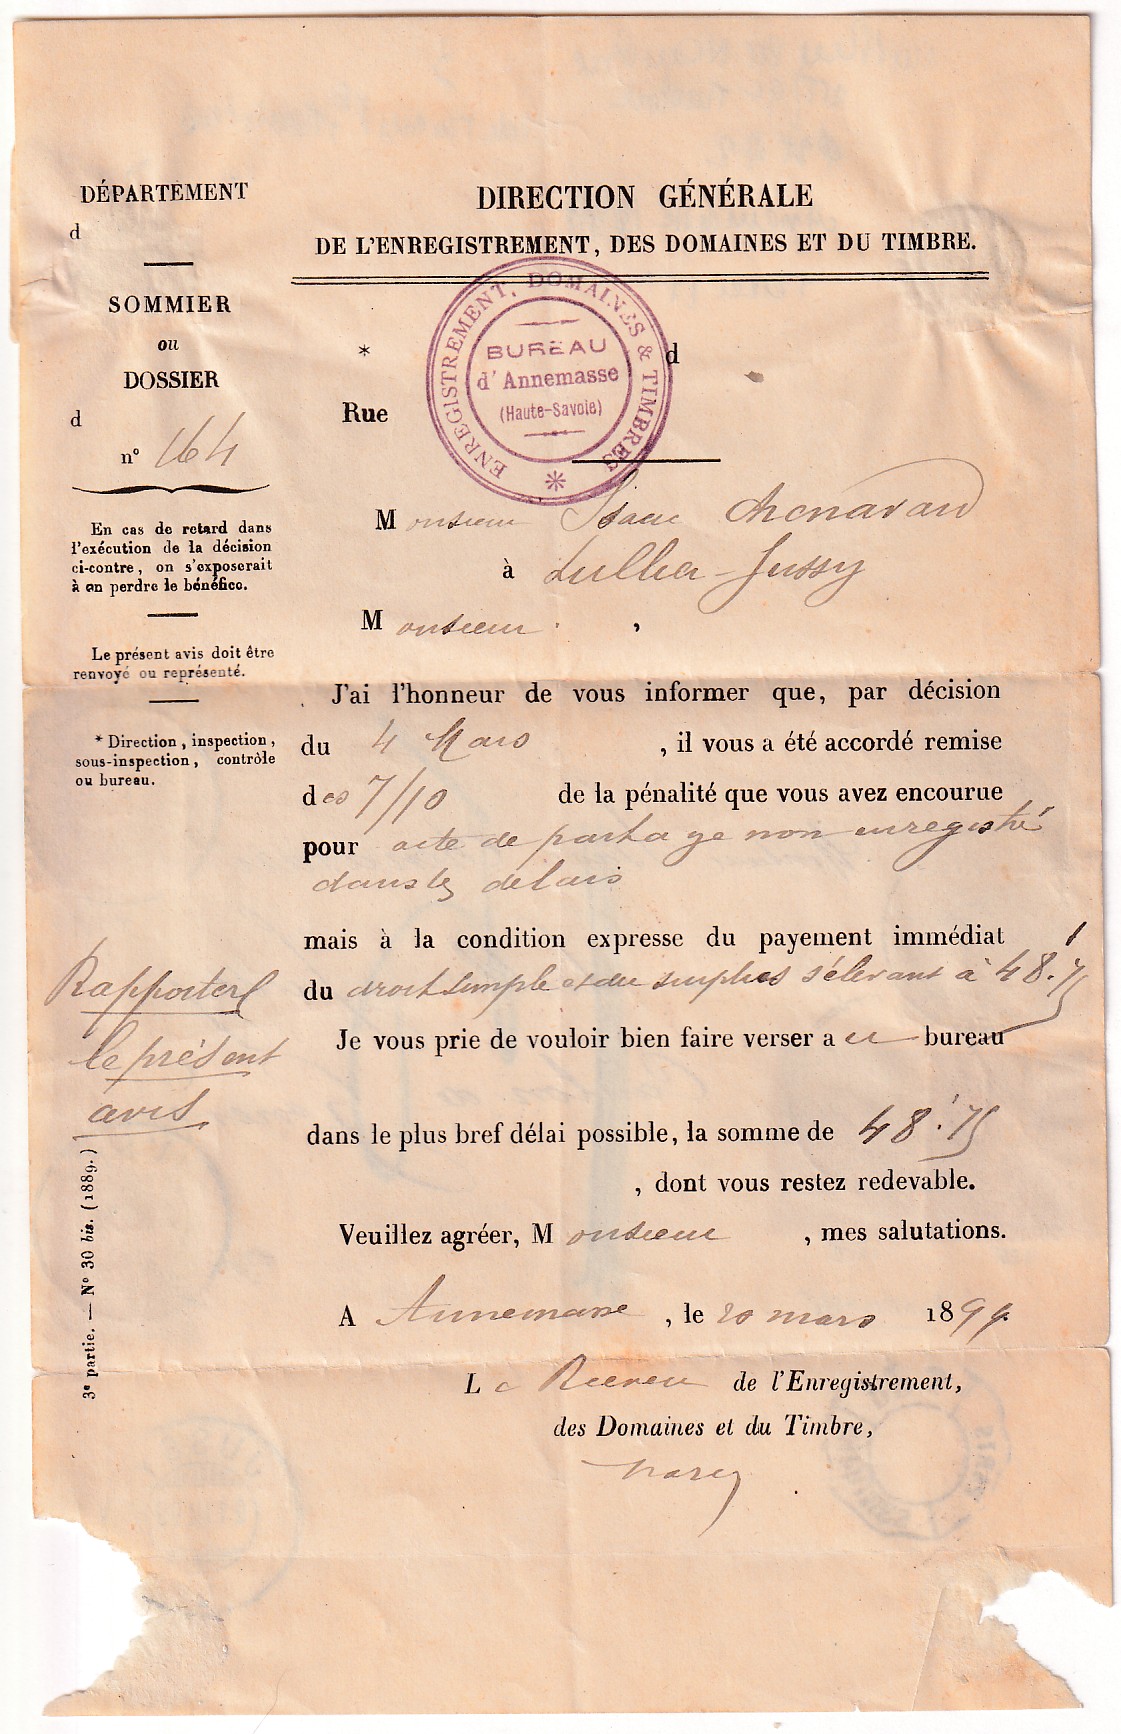 DÉPARTEMENT
d
SOMMIER
ou
DOSSIER
d
n° 164
En cas de retard dans
l'exécution de la décision
ci-contre, on s'exposerait
à en perdre le bénéfice.
Le présent avis doit être
renvoyé ou représenté.
* Direction, inspection,
sous-inspection, contrôle
ou bureau.
Rapporter
le présent
avis
3e partie. — N° 30 bis. (1889.)
DIRECTION GÉNÉRALE
DE L'ENREGISTREMENT, DES DOMAINES ET DU TIMBRE.
ENREGISTREMENT, DOMAINES & TIMBRES
BUREAU
d'Annemasse
(Haute-Savoie)
* d
Rue
Monsieur Isaac Chenavard
à Lullier-Jussy
Monsieur ,
J'ai l'honneur de vous informer que, par décision
du 4 Mars , il vous a été accordé remise
des 7/10 de la pénalité que vous avez encourue
pour acte de partage non enregistré
dans les délais
mais à la condition expresse du payement immédiat
du droit simple et du surplus s'élevant à 48.f75
Je vous prie de vouloir bien faire verser a ce bureau
dans le plus bref délai possible, la somme de 48.f75
, dont vous restez redevable.
Veuillez agréer, Monsieur , mes salutations.
A Annemasse , le 20 mars 1899
Le Receveur de l'Enregistrement,
des Domaines et du Timbre,